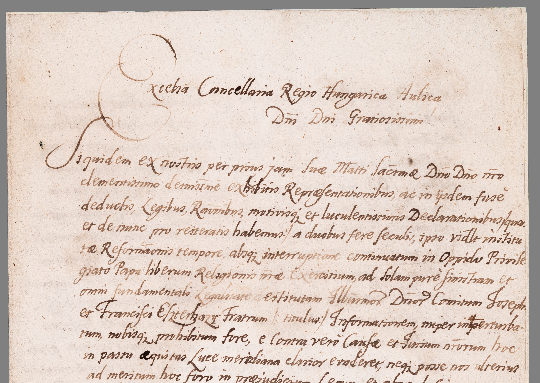 Excelsa Cancellaria Regio Hungarica Aulica
Dñi Dñi Gratiosissimi
Siquidem ex nostris per prius jam Suae Matti Sacrmae Dno Dno nro
clementissimo demisse exhibitis Repraesentationibus, ac in ijsdem fuse
deductis, Legibus, Rationibus, motivisq et luculentissimis Declarationibus,
et de nunc pro reiteratis habemus a duobus fere seculis, ipso institu
tae Reformaonis tempore, absq interruptione continuatum in Oppido Privile
giato Papa liberum Religionis nrae Exercitium, ad solam pure sinistram et
omni fundamentali destitutam Illmorum Dnor Comitum Josephi
et Francisci Eszterhazy Fratrum titulus Informationem, nuper imperturba
tum, nobisq prohibitum fore, e contra vero Causae et Jurium nrorum hoc
in passu aequitas Luce meridiana clarior evaderet, neq posse nos ulterius
ad meritum hoc foro in praejudicium Legum et